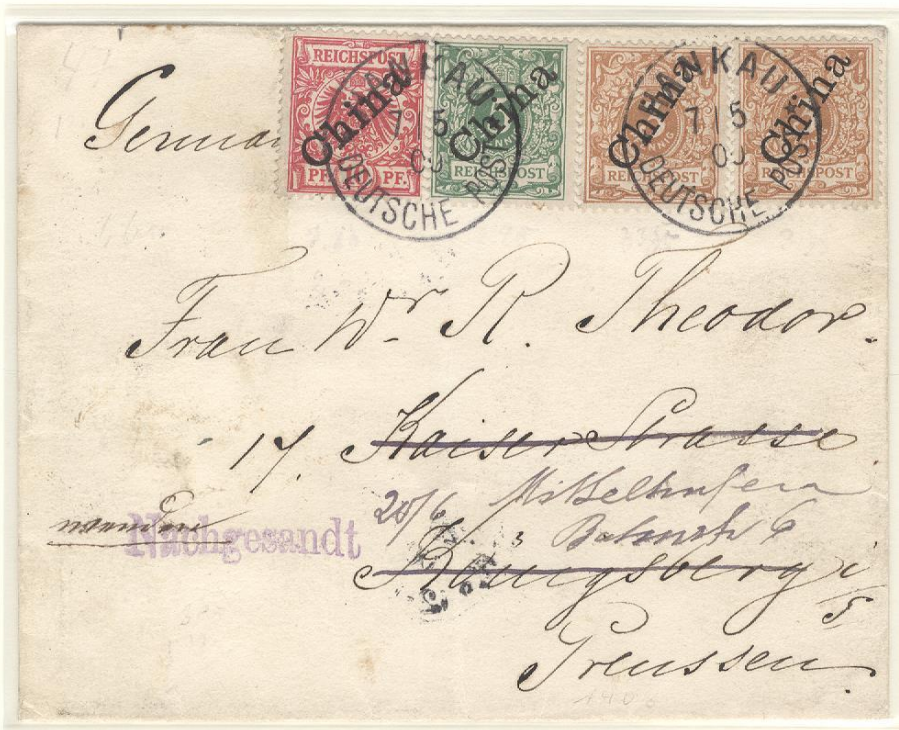 REICHSPOST
PF. PF.
China
REICHSPOST
China
REICHSPOST
China
REICHSPOST
China
HANKAU
7/5
00
DEUTSCHE POST
HANKAU
7/5
00
DEUTSCHE POST
Frau Wr R. Theodor.
17. Kaiser Strasse
20/6
Bahnstr 6
wenden
Nachgesandt
Königsberg i/
Preussen.